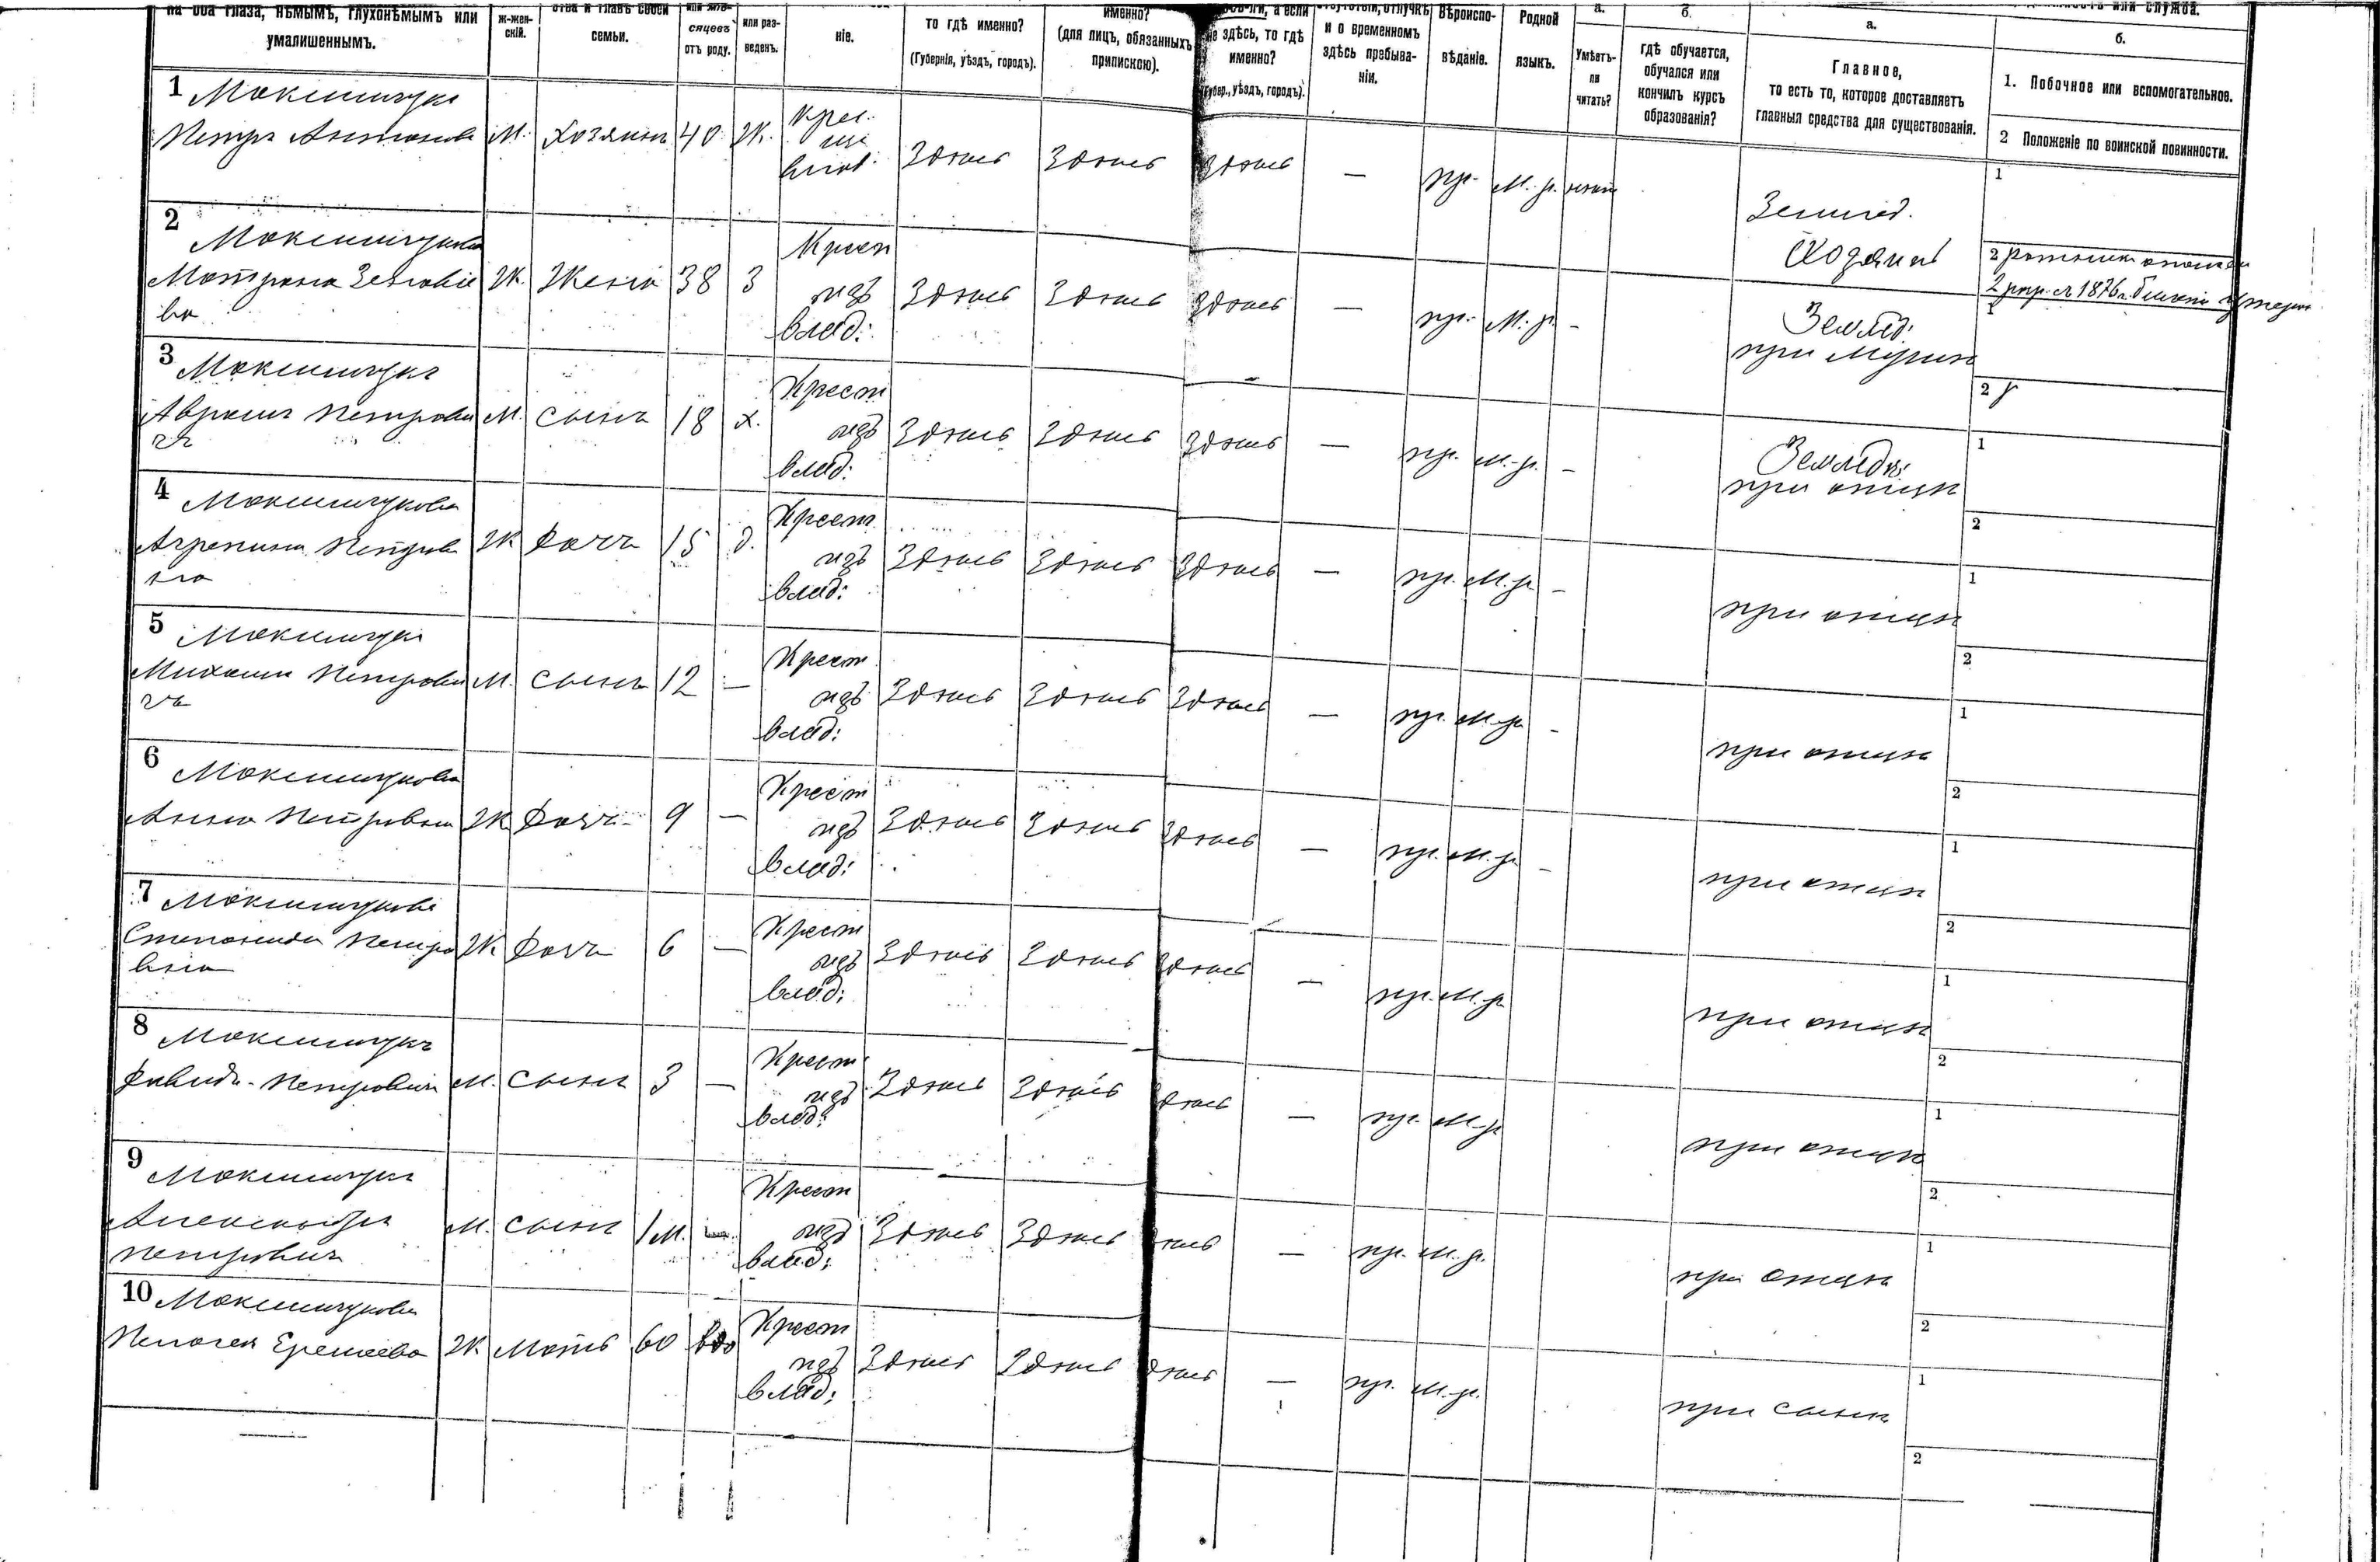 на оба глаза, нѣмымъ, глухонѣмымъ или умалишеннымъ.
ж-жен-скій.
семьи.
сяцевъ отъ роду.
или раз-веденъ.
ніе.
то гдѣ именно?
(Губернія, уѣздъ, городъ).
именно?
(для лицъ, обязанныхъ припискою).
не здѣсь, то гдѣ именно?
(Губер., уѣздъ, городъ).
и о временномъ здѣсь пребыва-ніи.
Вѣроиспо-вѣданіе.
Родной языкъ.
а.
Умѣетъ-ли читать?
б.
гдѣ обучается, обучался или кончилъ курсъ образованія?
а.
Главное,
то есть то, которое доставляетъ главныя средства для существованія.
б.
1. Побочное или вспомогательное.
2 Положеніе по воинской повинности.
1 Максимчукъ
Петръ Антоновъ М. Хозяинъ 40 Ж. Крес. Здѣсь Здѣсь Здѣсь — пр. М. р. Землед.
Хозяинъ
1
2 ратникъ
2 с 1876
2 Максимчукова
Матрона М. Жена 38 З Крест
изъ
влад: Здѣсь Здѣсь Здѣсь — пр. М. р. – Землед:
при мужѣ
1
2
3 Максимчукъ
Аврамъ Петрови
чъ М. сынъ 18 х. Крест
изъ
влад: Здѣсь Здѣсь Здѣсь — пр. м. р. – Землед:
при отцѣ
1
2
4 Максимчукова
Агрепина Петров
на Ж Дочь 15 д. Крест
изъ
влад: Здѣсь Здѣсь Здѣсь — пр. М. р – при отцѣ
1
2
5 Максимчукъ
Михаилъ Петрови
чъ М. Сынъ 12 — Крест
изъ
влад: Здѣсь Здѣсь Здѣсь — пр. м. р – при отцѣ
1
2
6 Максимчукова
Анна Петровна Ж Дочь 9 — Крест
изъ
влад: Здѣсь Здѣсь Здѣсь — пр. м. р – при отцѣ
1
2
7 Максимчукова
Степанида Петро
вна Ж Дочь 6 — Крест
изъ
влад: Здѣсь Здѣсь Здѣсь — пр. М. р при отцѣ
1
2
8 Максимчукъ
Давидъ Петровичъ М. Сынъ 3 — Крест
изъ
влад: Здѣсь Здѣсь Здѣсь — пр. М. р при отцѣ
1
2
9 Максимчукъ
Александръ
Петровичъ М. Сынъ 1 М. Крест
изъ
влад: Здѣсь Здѣсь Здѣсь — пр. м. р. при отцѣ
1
2
10 Максимчукова
Пелагея Еремеева Ж. Мать 60 вдо Крест
изъ
влад: Здѣсь Здѣсь Здѣсь — пр. м. р. при сынѣ
1
2